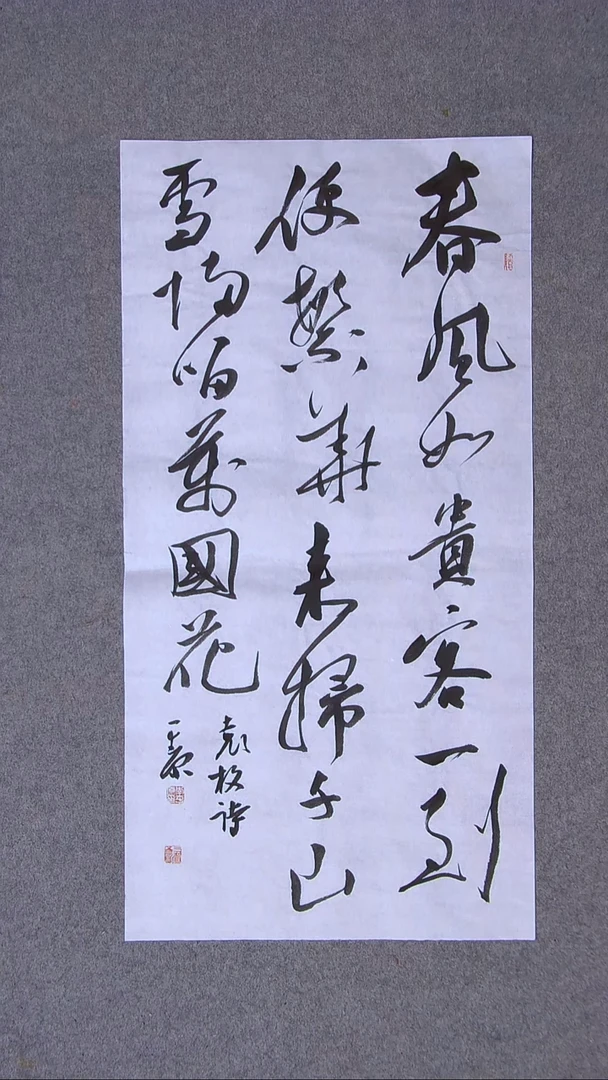 春風如貴客一到
便繁華来掃千山
雪歸留萬國花
袁枚詩